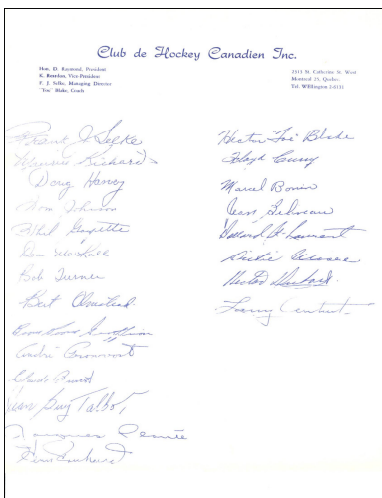 Club de Hockey Canadien Inc.
Hon. D. Raymond, President
K. Reardon, Vice-President
F. J. Selke, Managing Director
"Toe" Blake, Coach
2313 St. Catherine St. West
Montreal 25, Quebec.
Tel. WEllington 2-6131
Frank J Selke
Maurice Richard
Doug Harvey
Tom Johnson
Phil Goyette
Don Marshall
Bob Turner
Bert Olmstead
Boom Boom Geoffrion
André Pronovost
Claude Provost
Jean Guy Talbot
Jacques Plante
Henri Richard
Hector "Toe" Blake
Floyd Curry
Marcel Bonin
Jean Béliveau
Dollard St-Laurent
Dickie Moore
Hector Dubois